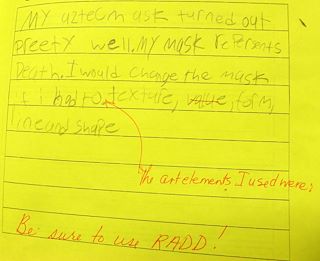 My aztecm ask turned out
preety well. My mask refersents
Death. I would change the mask
if i had to. texture, value, form,
line and shape
The art elements I used were:
Be sure to use RADD!